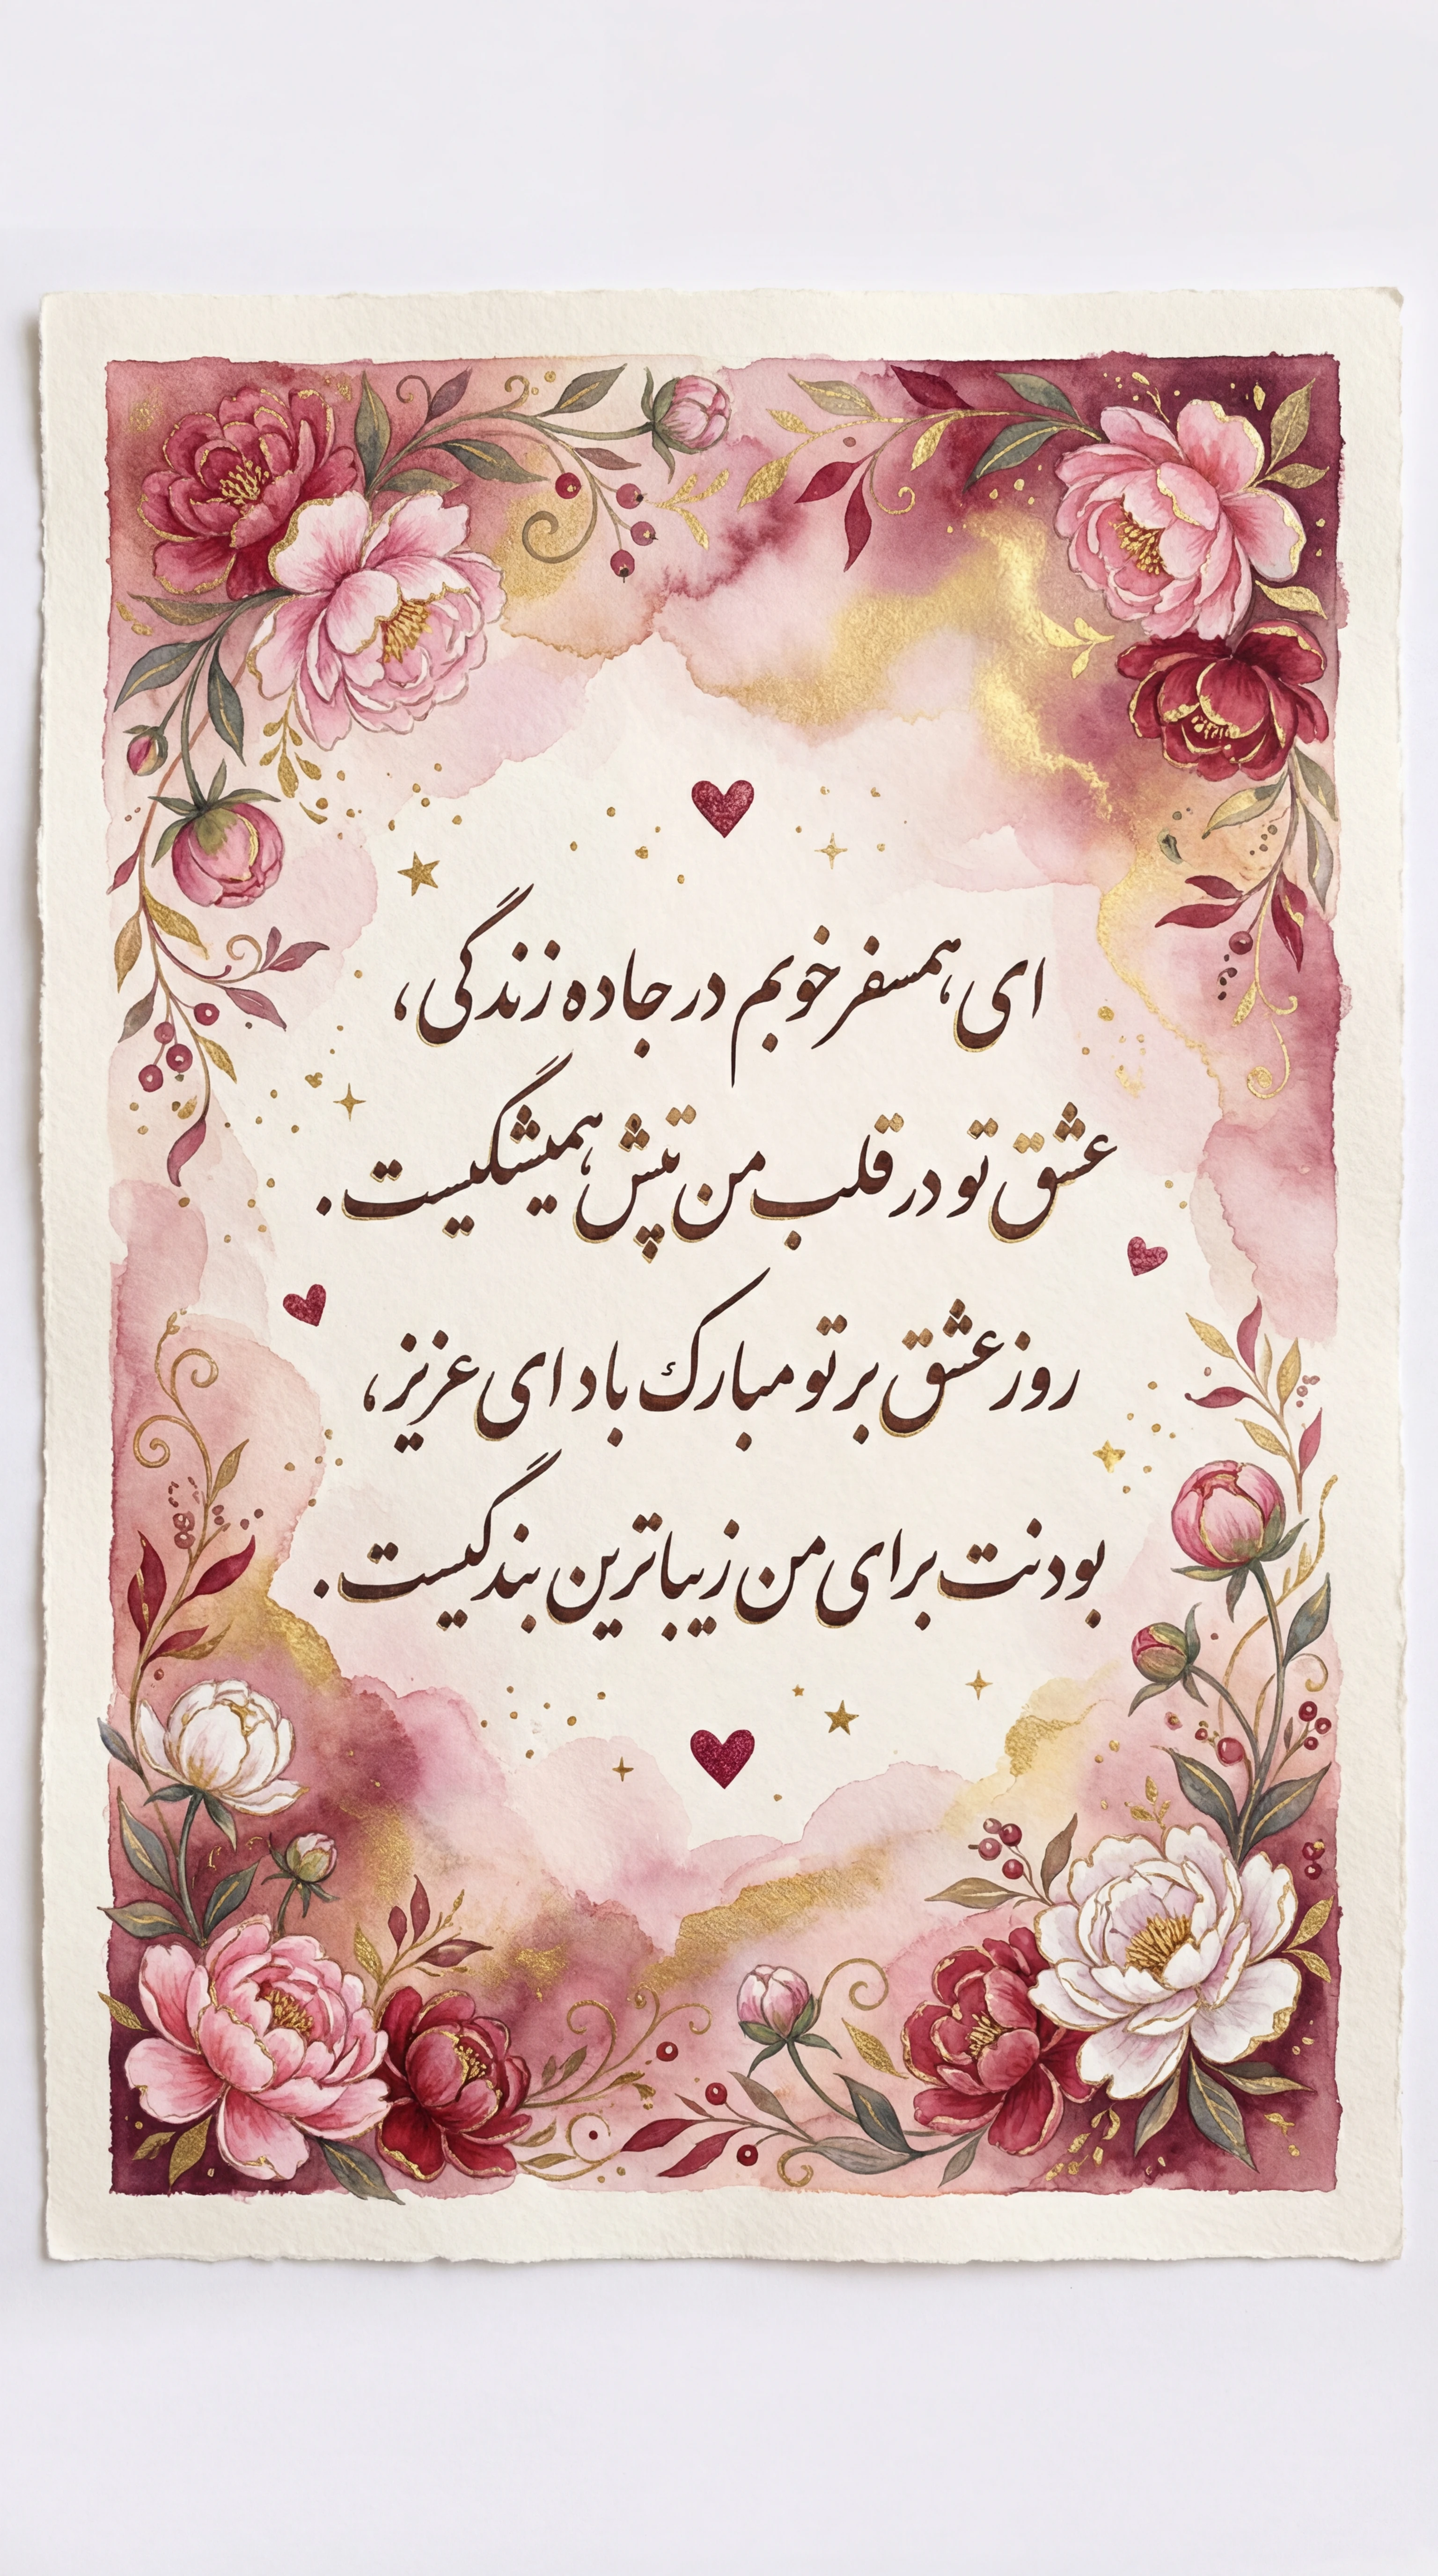 ای همسفر خوبم در جاده زندگی،
عشق تو در قلب من تپش همیشگیست.
روز عشق بر تو مبارک باد ای عزیز،
بودنت برای من زیباترین بندگیست.